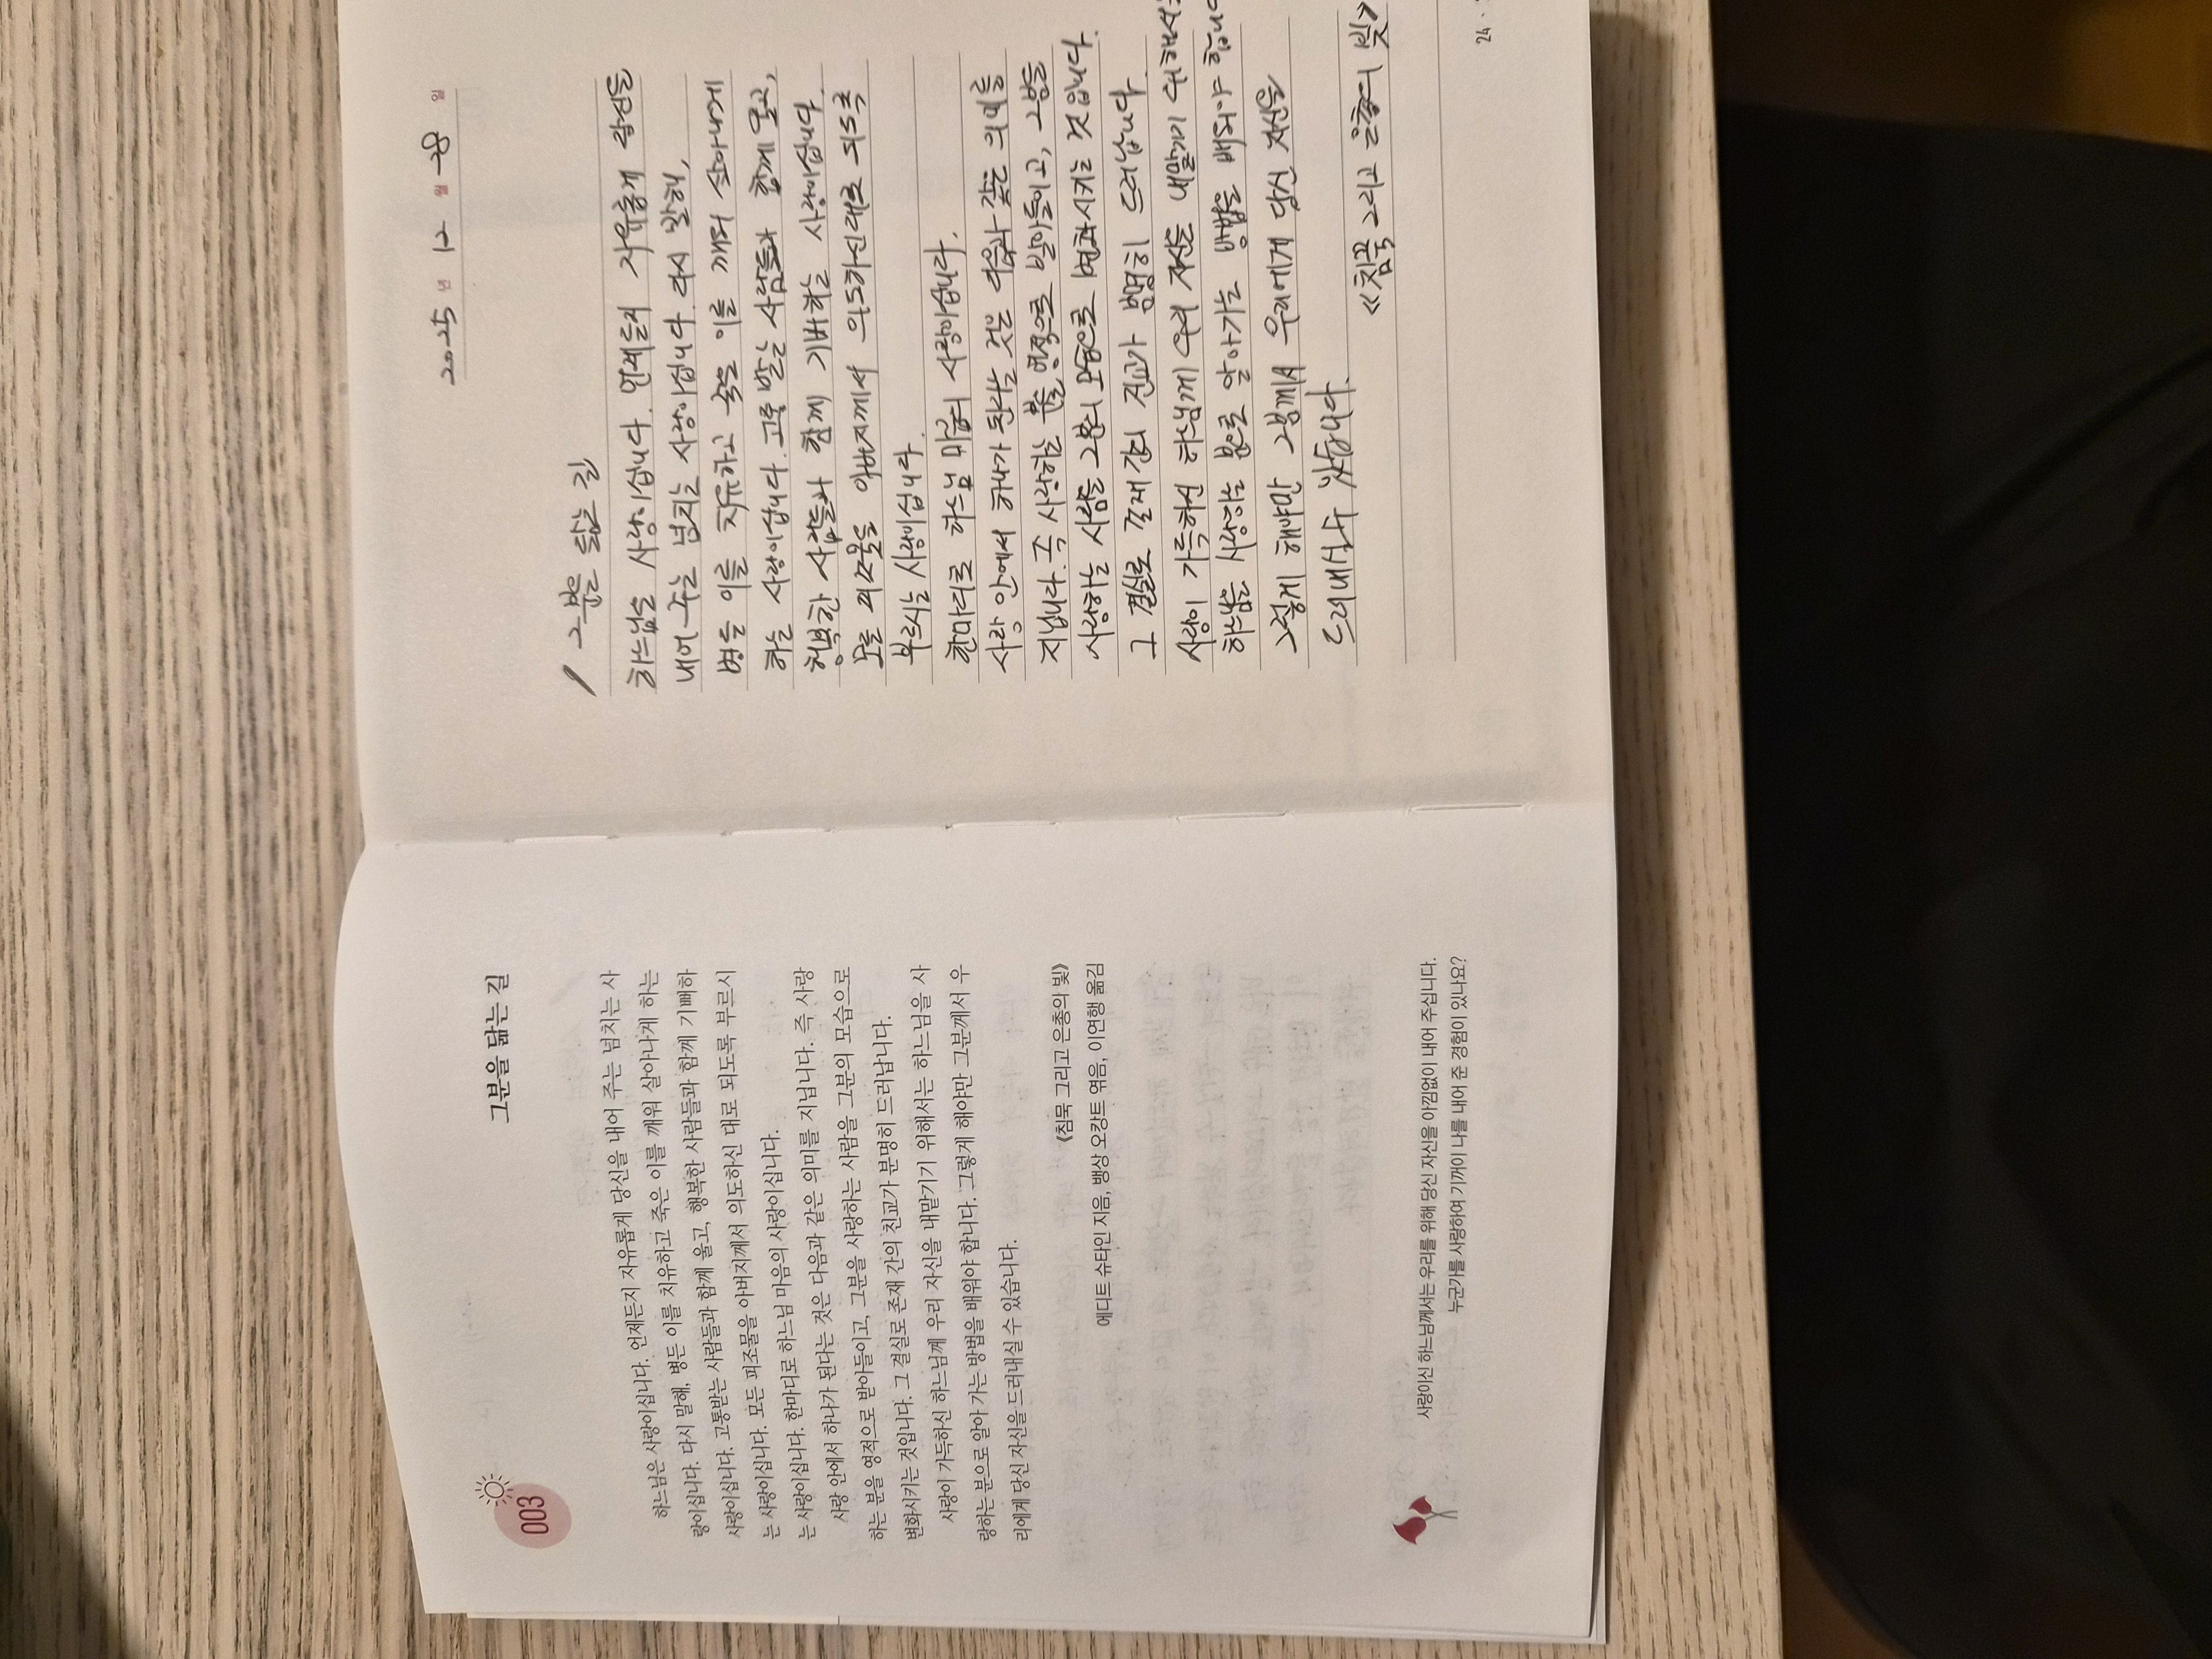 003
그분을 닮는 길
하느님은 사랑이십니다. 언제든지 자유롭게 당신을 내어 주는 넘치는 사
랑이십니다. 다시 말해, 병든 이를 치유하고 죽은 이를 깨워 살아나게 하는
사랑이십니다. 고통받는 사람들과 함께 울고, 행복한 사람들과 함께 기뻐하
는 사랑이십니다. 모든 피조물을 아버지께서 의도하신 대로 되도록 부르시
는 사랑이십니다. 한마디로 하느님 마음의 사랑이십니다.
사랑 안에서 하나가 된다는 것은 다음과 같은 의미를 지닙니다. 즉 사랑
하는 분을 영적으로 받아들이고, 그분을 사랑하는 사람을 그분의 모습으로
변화시키는 것입니다. 그 결실로 존재 간의 친교가 분명히 드러납니다.
사랑이 가득하신 하느님께 우리 자신을 내맡기기 위해서는 하느님을 사
랑하는 분으로 알아 가는 방법을 배워야 합니다. 그렇게 해야만 그분께서 우
리에게 당신 자신을 드러내실 수 있습니다.
《침묵 그리고 은총의 빛》
에디트 슈타인 지음, 뱅상 오캉트 엮음, 이연행 옮김
사랑이신 하느님께서는 우리를 위해 당신 자신을 아낌없이 내어 주십니다.
누군가를 사랑하여 기꺼이 나를 내어 준 경험이 있나요?
2025 년 12 월 28 일
그분을 닮는 길
하느님은 사랑이십니다. 언제든지 자유롭게 당신을
내어 주는 넘치는 사랑이십니다. 다시 말해,
병든 이를 치유하고 죽은 이를 깨워 살아나게
하는 사랑이십니다. 고통 받는 사람들과 함께 울고,
행복한 사람들과 함께 기뻐하는 사랑이십니다.
모든 피조물을 아버지께서 의도하신대로 되도록
부르시는 사랑이십니다.
한마디로 하느님 마음의 사랑이십니다.
사랑 안에서 하나가 된다는 것은 다음과 같은 의미를
지닙니다. 즉 사랑하는 분을 영적으로 받아들이고, 그분을
사랑하는 사람을 그분의 모습으로 변화시키는 것입니다.
그 결실로 존재 간의 친교가 분명히 드러납니다.
사랑이 가득하신 하느님께 우리 자신을 내맡기기 위해서는
하느님을 사랑하는 분으로 알아가는 방법을 배워야 합니다
그렇게 해야만 그분께서 우리에게 당신 자신을
드러내실 수 있습니다.
《침묵 그리고 은총의 빛》
24